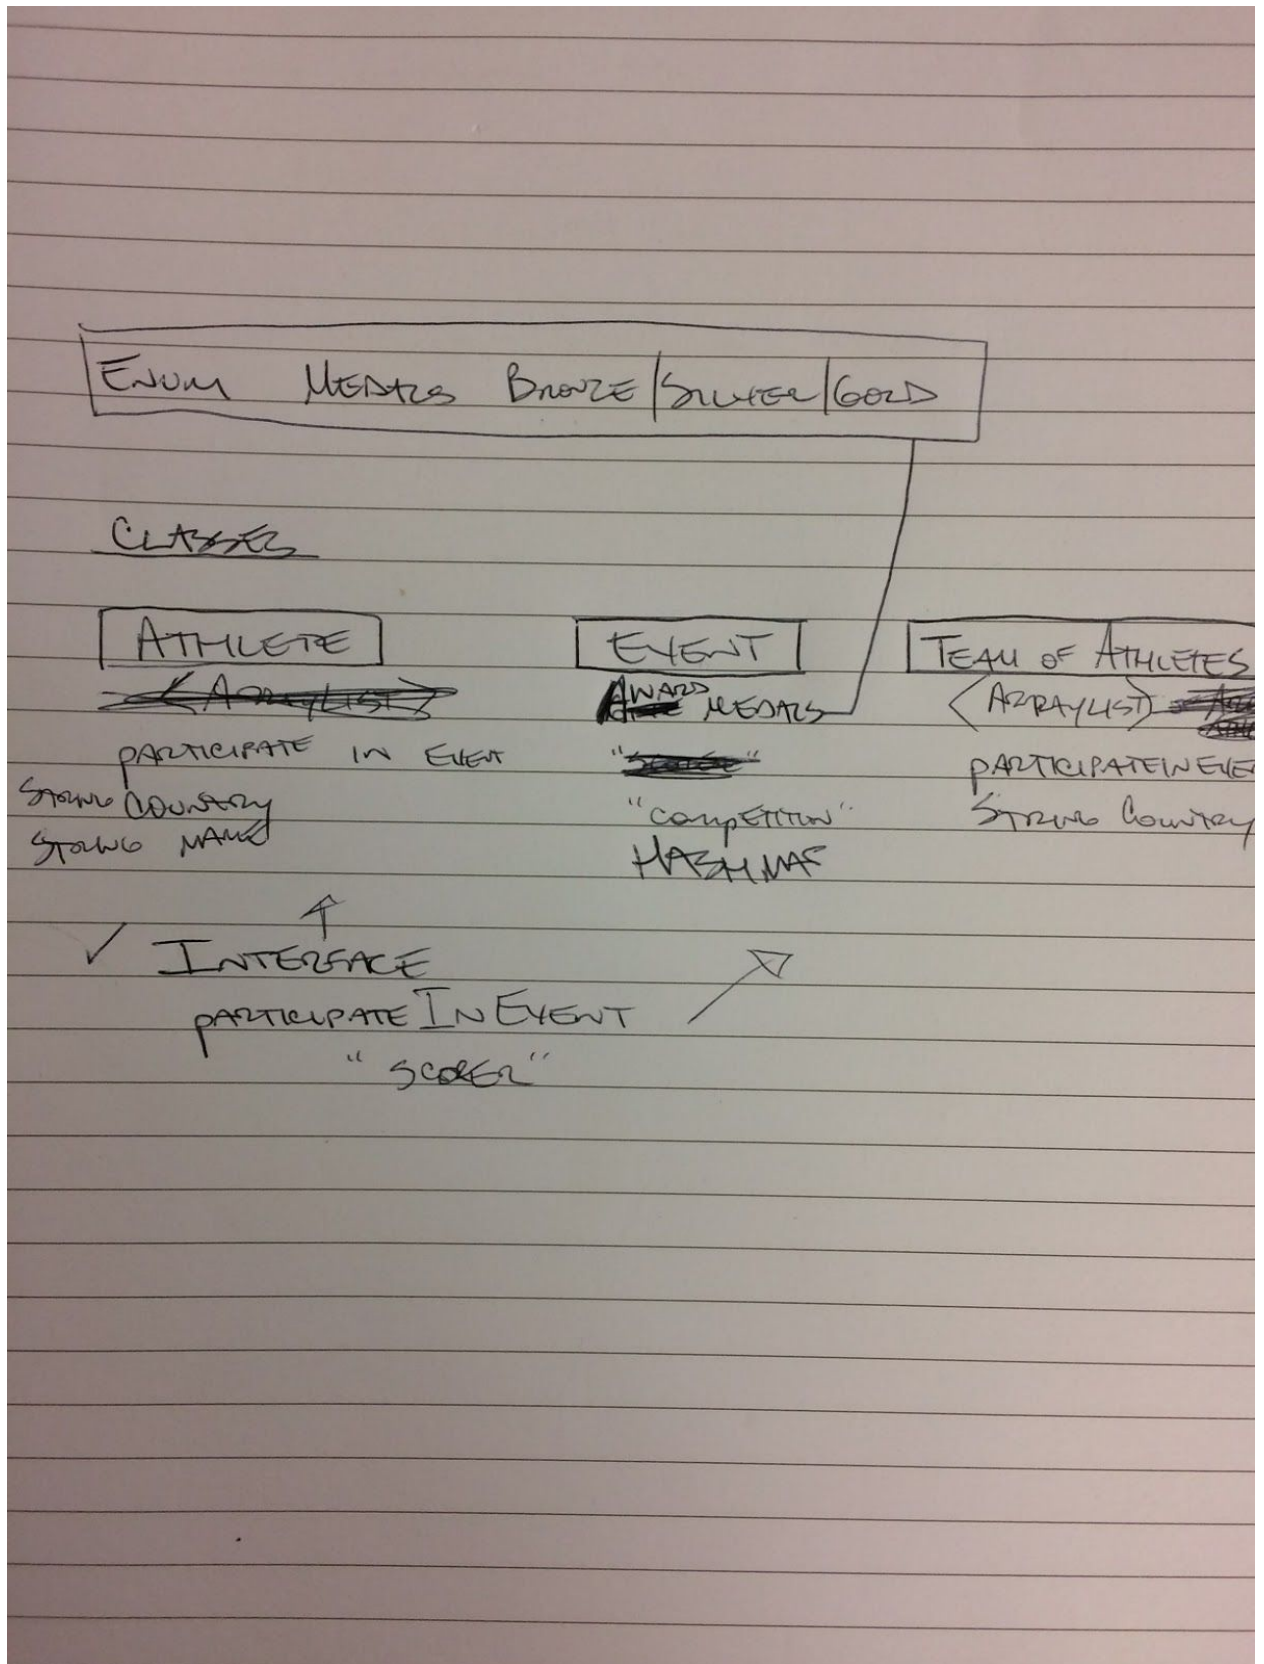 ENUM MEDALS BRONZE/SILVER/GOLD
CLASSES
ATHLETE
<ARRAYLIST>
PARTICIPATE IN EVENT
STRING COUNTRY
STRING NAME
EVENT
AWARD MEDALS
"COMPETITION"
HASHMAP
TEAM OF ATHLETES
<ARRAYLIST>
PARTICIPATEINEVE
STRING COUNTRY
✓ INTERFACE
PARTICIPATE IN EVENT
"SCORER"